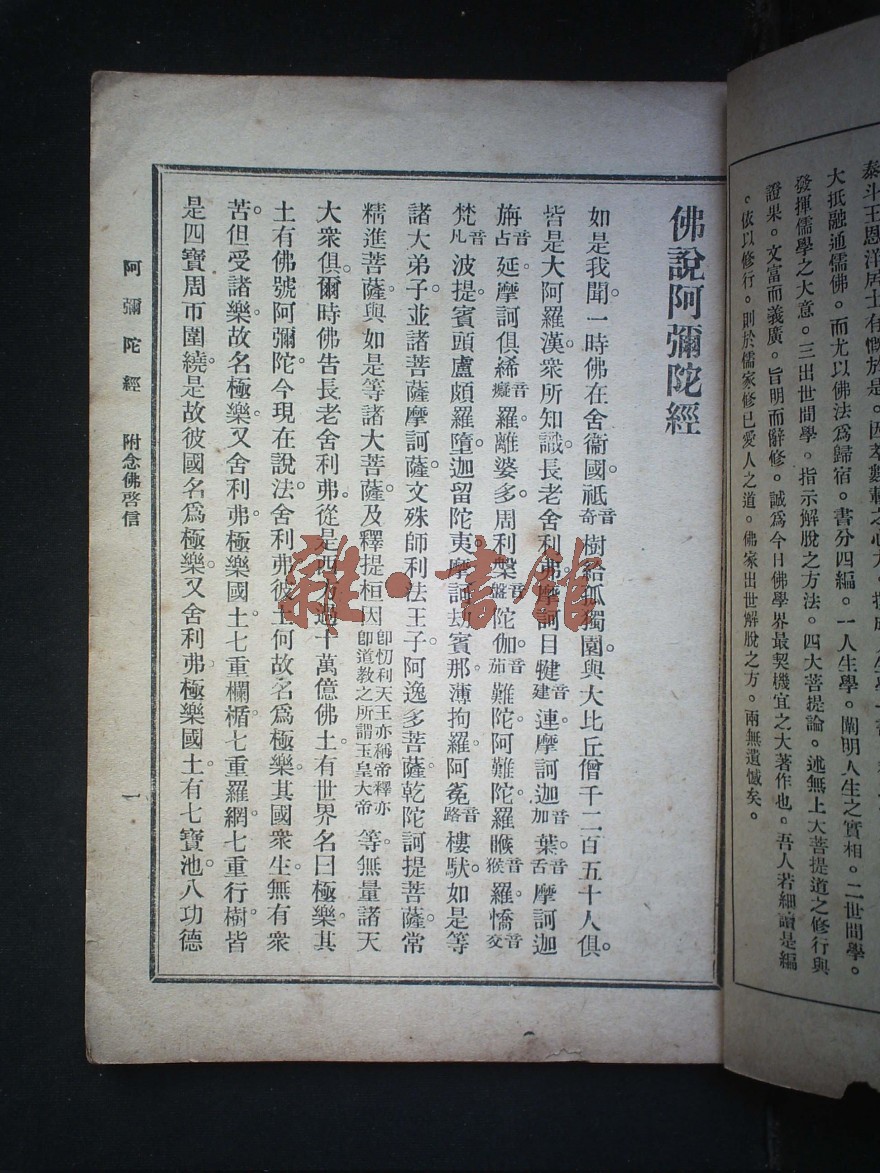 泰斗王恩洋居士有慨於是。因萃數載之心力。
大抵融通儒佛。而尤以佛法爲歸宿。書分四編。一人生學。闡明人生之實相。二世間學。
發揮儒學之大意。三出世間學。指示解脫之方法。四大菩提論。述無上大菩提道之修行與
證果。文富而義廣。旨明而辭修。誠爲今日佛學界最契機宜之大著作也。吾人若細讀是編
。依以修行。則於儒家修已愛人之道。佛家出世解脫之方。兩無遺憾矣。
佛說阿彌陀經
如是我聞。一時佛在舍衞國。祗音奇樹給孤獨園。與大比丘僧千二百五十人俱。
皆是大阿羅漢。衆所知識。長老舍利弗。摩訶目犍音建連。摩訶迦音加葉音舌。摩訶迦
旃音占延。摩訶俱絺音癡羅。離婆多。周利槃音盤陀伽音茄。難陀。阿難陀。羅睺音猴羅。憍音交
梵音凡波提。賓頭盧頗羅墮。迦留陀夷。摩訶劫賓那。薄拘羅。阿㝹音路樓馱。如是等
諸大弟子。並諸菩薩摩訶薩。文殊師利法王子。阿逸多菩薩。乾陀訶提菩薩。常
精進菩薩。與如是等諸大菩薩。及釋提桓因卽忉利天王亦稱帝釋亦卽道教之所謂玉皇大帝等。無量諸天
大衆俱。爾時佛告長老舍利弗。從是西方。過十萬億佛土。有世界名曰極樂。其
土有佛。號阿彌陀。今現在說法。舍利弗。彼土何故名爲極樂。其國衆生。無有衆
苦。但受諸樂。故名極樂。又舍利弗。極樂國土。七重欄楯。七重羅網。七重行樹。皆
是四寶。周帀圍繞。是故彼國名爲極樂。又舍利弗。極樂國土。有七寶池。八功德
阿彌陀經 附念佛啓信
一
雜·書館